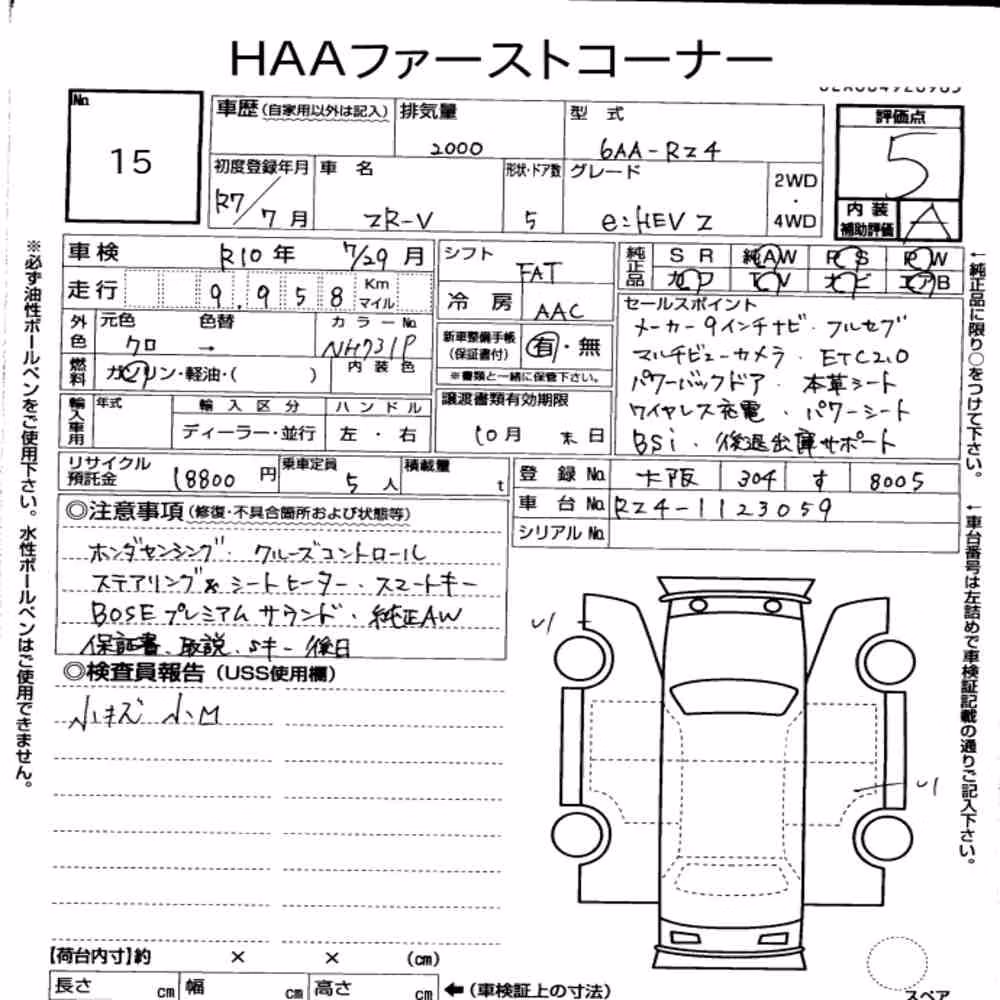 HAAファーストコーナー
No.
15
車歴(自家用以外は記入)
排気量
2000
型式
6AA-RZ4
評価点
5
内装
補助評価
A
初度登録年月
R7/7月
車名
ZR-V
形状・ドア数
5
グレード
e:HEV Z
2WD
・
4WD
車検
R10年 7/29月
走行
9.958 Km
マイル
シフト
FAT
冷房
AAC
純正品
SR 純AW PS PW
カワ TV ナビ エアB
外色
元色
色替
カラーNo.
クロ →
NH731P
燃料
ガソリン・軽油・( )
内装色
新車整備手帳
(保証書付)
有・無
※書類と一緒に保管下さい。
セールスポイント
メーカー9インチナビ・フルセグ
マルチビューカメラ・ETC2.0
パワーバックドア・本革シート
ワイヤレス充電・パワーシート
BSi・後退出庫サポート
輸入車用
年式
輸入区分
ハンドル
ディーラー・並行
左・右
譲渡書類有効期限
10月 末日
リサイクル
預託金
18800円
乗車定員
5人
積載量
t
登録No.
大阪 304 す 8005
車台No.
RZ4-1123059
シリアルNo.
◎注意事項(修復・不具合箇所および状態等)
ホンダセンシング・クルーズコントロール
ステアリング&シートヒーター・スマートキー
BOSEプレミアムサウンド・純正AW
保証書、取説、Sキー後日
◎検査員報告(USS使用欄)
小キズ 小M
U1
U1
※必ず油性ボールペンをご使用下さい。水性ボールペンはご使用できません。
←純正品に限り○をつけて下さい。
←車台番号は左詰めで車検証記載の通りご記入下さい。
【荷台内寸】約 × × (cm)
長さ cm 幅 cm 高さ cm ←(車検証上の寸法)
スペア